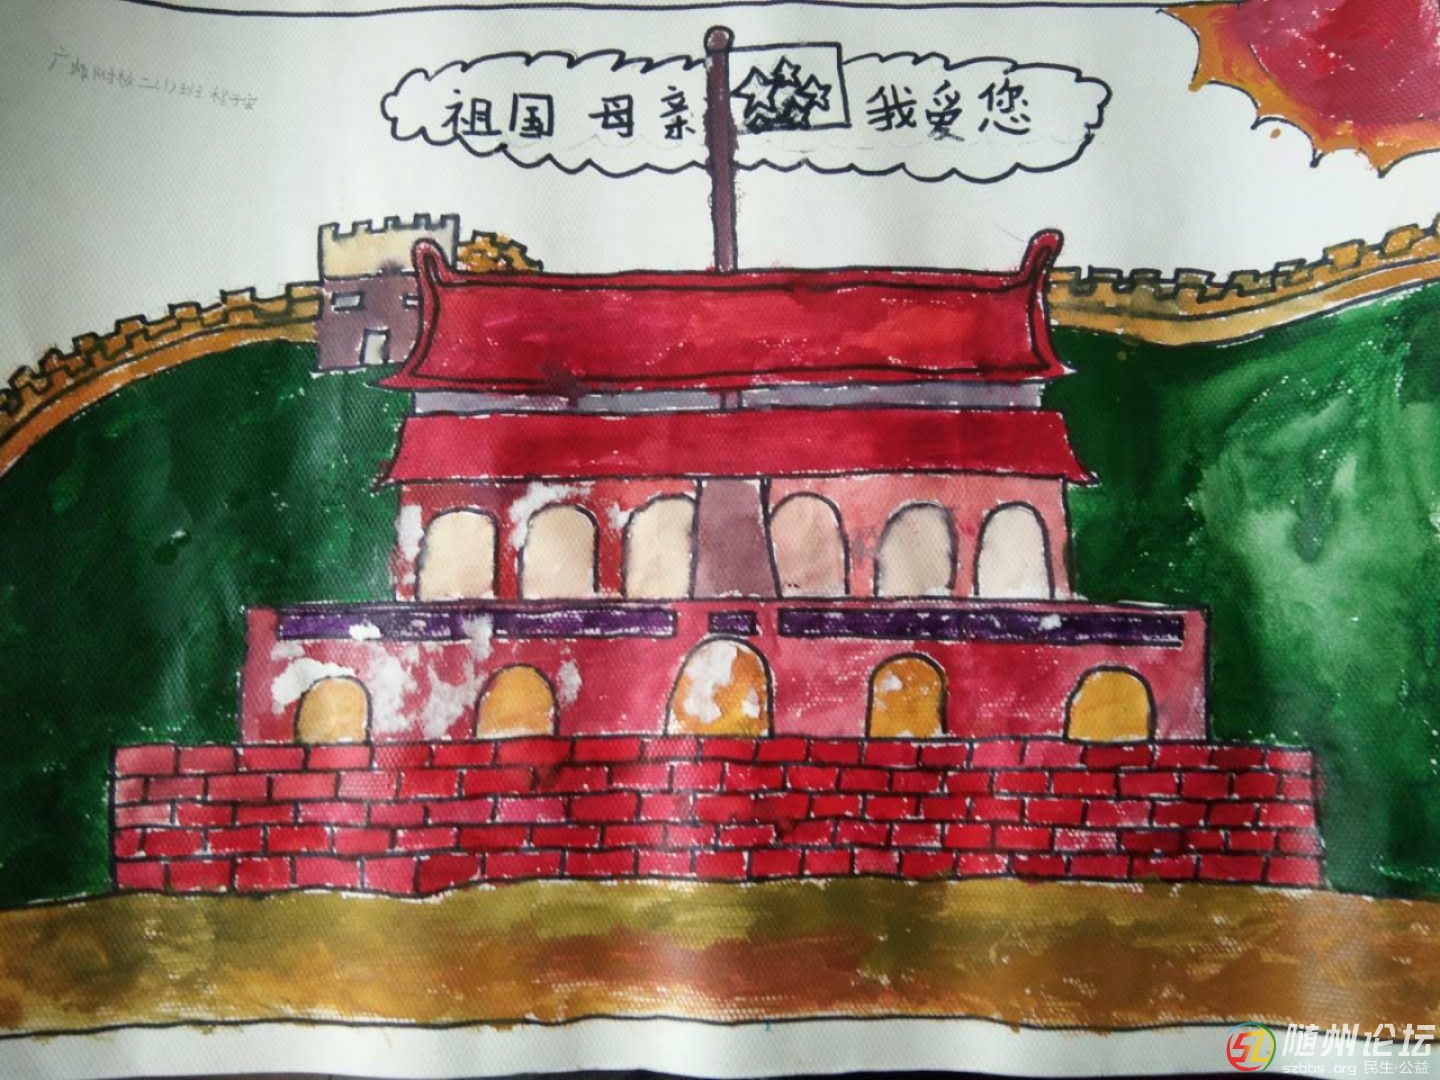 广师附校二(1)班 程子安
祖国 母亲 我受您
随州论坛
szbbs.org 民生·公益